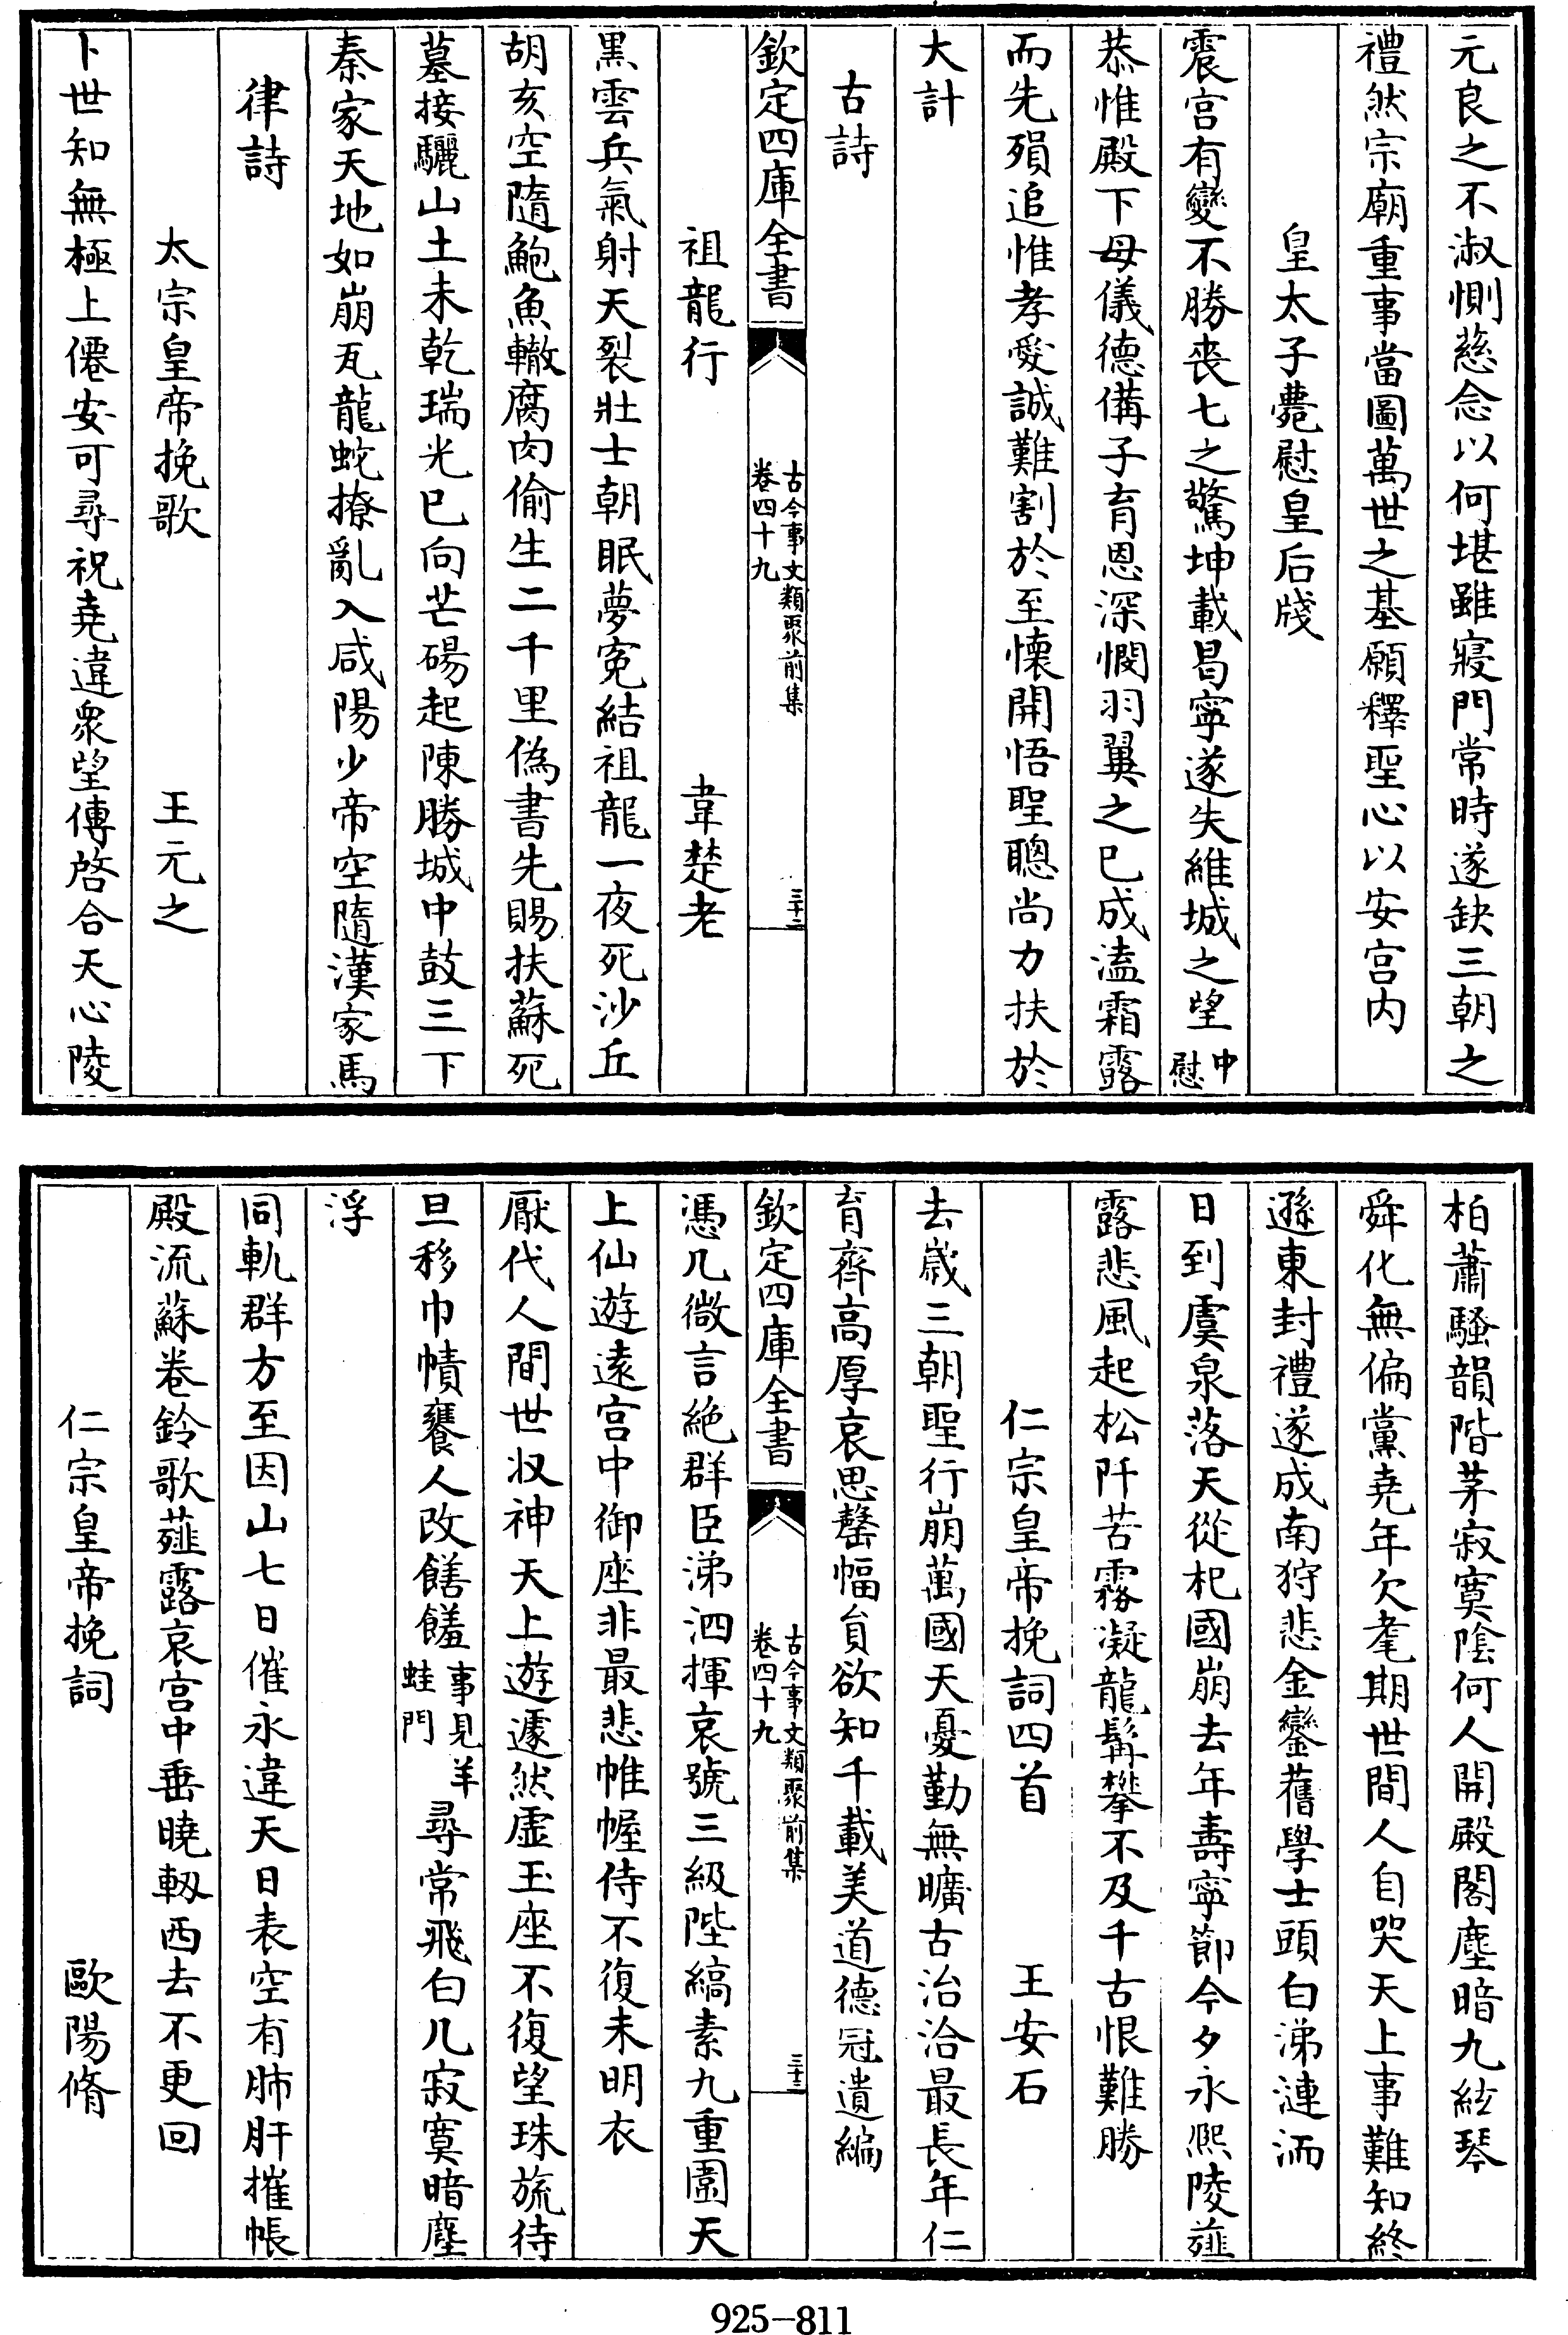 元良之不淑惻慈念以何堪雖寢門常時遂缺三朝之
禮然宗廟重事當圖萬世之基願釋聖心以安宫内
皇太子薨慰皇后牋
震宫有變不勝喪七之驚坤載昌寧遂失維城之望中慰
恭惟殿下母儀德備子育恩深憫羽翼之已成溘霜露
而先殞追惟孝愛誠難割於至懷開悟聖聰尚力扶於
大計
古詩
欽定四庫全書
古今事文類聚前集
卷四十九
三十二
祖龍行 韋楚老
黒雲兵氣射天裂壯士朝眠夢寃結祖龍一夜死沙丘
胡亥空隨鮑魚轍腐肉偷生二千里偽書先賜扶蘇死
墓接驪山土未乾瑞光已向芒碭起陳勝城中鼓三下
秦家天地如崩瓦龍蛇撩亂入咸陽少帝空隨漢家馬
律詩
太宗皇帝挽歌 王元之
卜世知無極上僊安可尋祝堯違衆望傳啓合天心陵
柏蕭騷韻階茅寂寞陰何人開殿閣塵暗九絃琴
舜化無偏黨堯年欠耄期世間人自哭天上事難知終
遜東封禮遂成南狩悲金鑾舊學士頭白涕漣洏
日到虞泉落天從杞國崩去年壽寧節今夕永熙陵薤
露悲風起松阡苦霧凝龍髯攀不及千古恨難勝
仁宗皇帝挽詞四首 王安石
去歲三朝聖行崩萬國天憂勤無曠古治洽最長年仁
育齊高厚哀思罄幅員欲知千載美道德冠遺編
欽定四庫全書
古今事文類聚前集
卷四十九
三十三
憑几微言絶群臣涕泗揮哀號三級陛縞素九重圍天
上仙遊遠宫中御座非最悲帷幄侍不復未明衣
厭代人間世収神天上遊遽然虚玉座不復望珠旒待
旦移巾幘饔人改饍饈事見羊蛙門尋常飛白几寂寞暗塵
浮
同軌群方至因山七日催永違天日表空有肺肝摧帳
殿流蘇卷鈴歌薤露哀宫中垂曉軔西去不更回
仁宗皇帝挽詞 歐陽脩
925-811